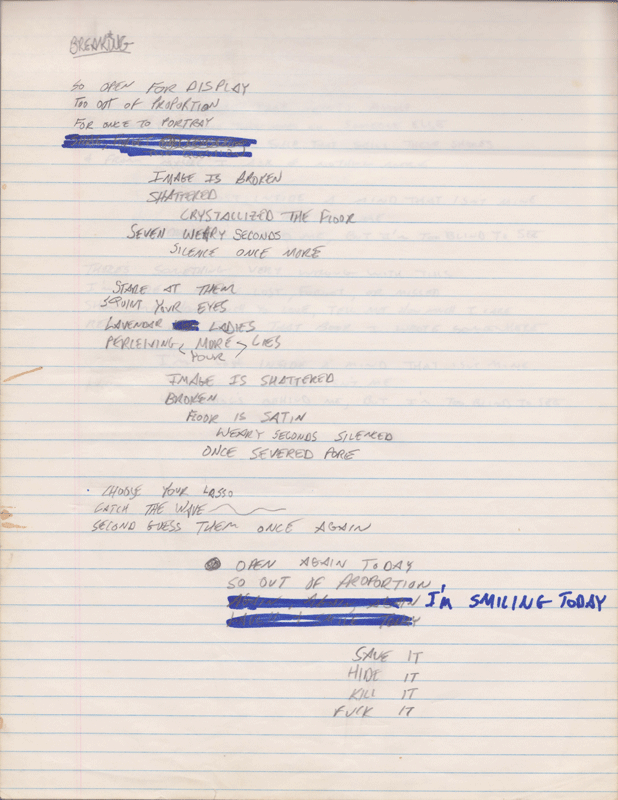 BREAKING
SO OPEN FOR DISPLAY
TOO OUT OF PROPORTION
FOR ONCE TO PORTRAY
IMAGE IS BROKEN
SHATTERED
CRYSTALLIZED THE FLOOR
SEVEN WEARY SECONDS
SILENCE ONCE MORE
STARE AT THEM
SQUINT YOUR EYES
LAVENDAR LADIES
PERCEIVING < MORE > LIES
YOUR
IMAGE IS SHATTERED
BROKEN
FLOOR IS SATIN
WEARY SECONDS SILENCED
ONCE SEVERED PORE
CHOOSE YOUR LASSO
CATCH THE WAVE
SECOND GUESS THEM ONCE AGAIN
OPEN AGAIN TODAY
SO OUT OF PROPORTION
I'M SMILING TODAY
SAVE IT
HIDE IT
KILL IT
FUCK IT